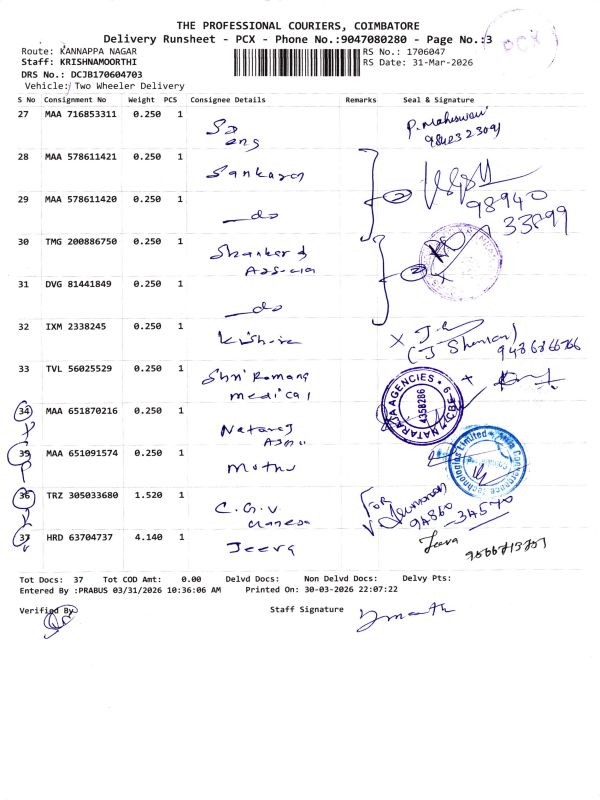 THE PROFESSIONAL COURIERS, COIMBATORE
Delivery Runsheet - PCX - Phone No.:9047080280 - Page No.:3
PCX
Route: KANNAPPA NAGAR
RS No.: 1706047
Staff: KRISHNAMOORTHI
RS Date: 31-Mar-2026
DRS No.: DCJB170604703
Vehicle: Two Wheeler Delivery
S No Consignment No Weight PCS Consignee Details Remarks Seal & Signature
27 MAA 716853311 0.250 1 P. Maheswari
eng
28 MAA 578611421 0.250 1 Sankara 2
98940
29 MAA 578611420 0.250 1 do
33899
30 TMG 200886750 0.250 1 Shanker 2
31 DVG 81441849 0.250 1 do
32 IXM 2338245 0.250 1
(J Shankar)
33 TVL 56025529 0.250 1 Shri Ramana
medical
NATARAJA AGENCIES CBE
4358286
34 MAA 651870216 0.250 1 Nataraj
39 MAA 651091574 0.250 1 Muthu
Technologies Limited
36 TRZ 305033680 1.520 1 C.G.V. For
94860
34570
37 HRD 63704737 4.140 1 Jeeva Jeeva
Tot Docs: 37 Tot COD Amt: 0.00 Delvd Docs: Non Delvd Docs: Delvy Pts:
Entered By :PRABUS 03/31/2026 10:36:06 AM Printed On: 30-03-2026 22:07:22
Verified By Staff Signature